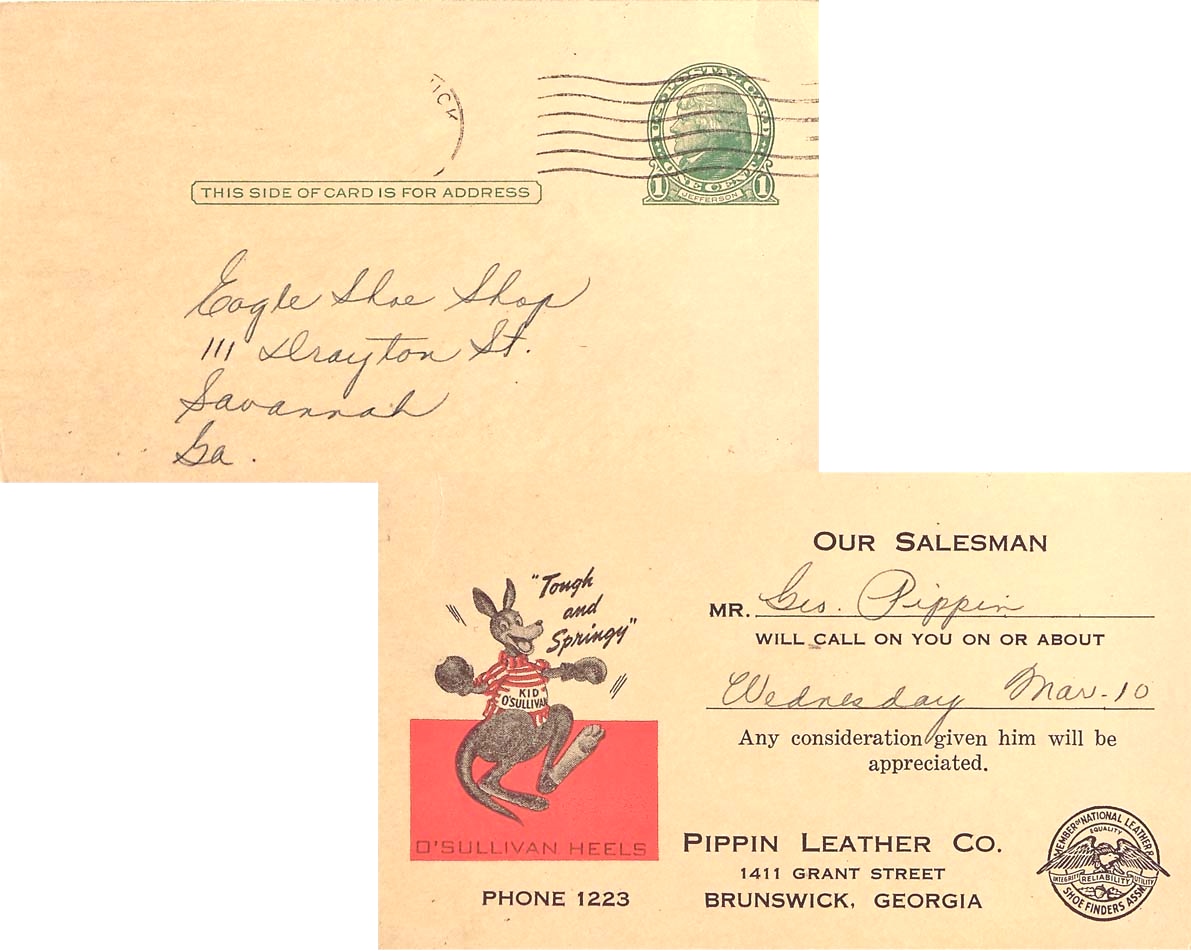 ICK
U.S. POSTAL CARD
ONE CENT
1 JEFFERSON 1
THIS SIDE OF CARD IS FOR ADDRESS
Eagle Shoe Shop
111 Drayton St.
Savannah
Ga.
OUR SALESMAN
MR. Geo. Pippin
WILL CALL ON YOU ON OR ABOUT
Wednesday Mar. 10
Any consideration given him will be
appreciated.
"Tough
and
Springy"
KID
O'SULLIVAN
O'SULLIVAN HEELS
PHONE 1223
PIPPIN LEATHER CO.
1411 GRANT STREET
BRUNSWICK, GEORGIA
MEMBER OF NATIONAL LEATHER &
EQUALITY
INTEGRITY RELIABILITY UTILITY
SHOE FINDERS ASSN.